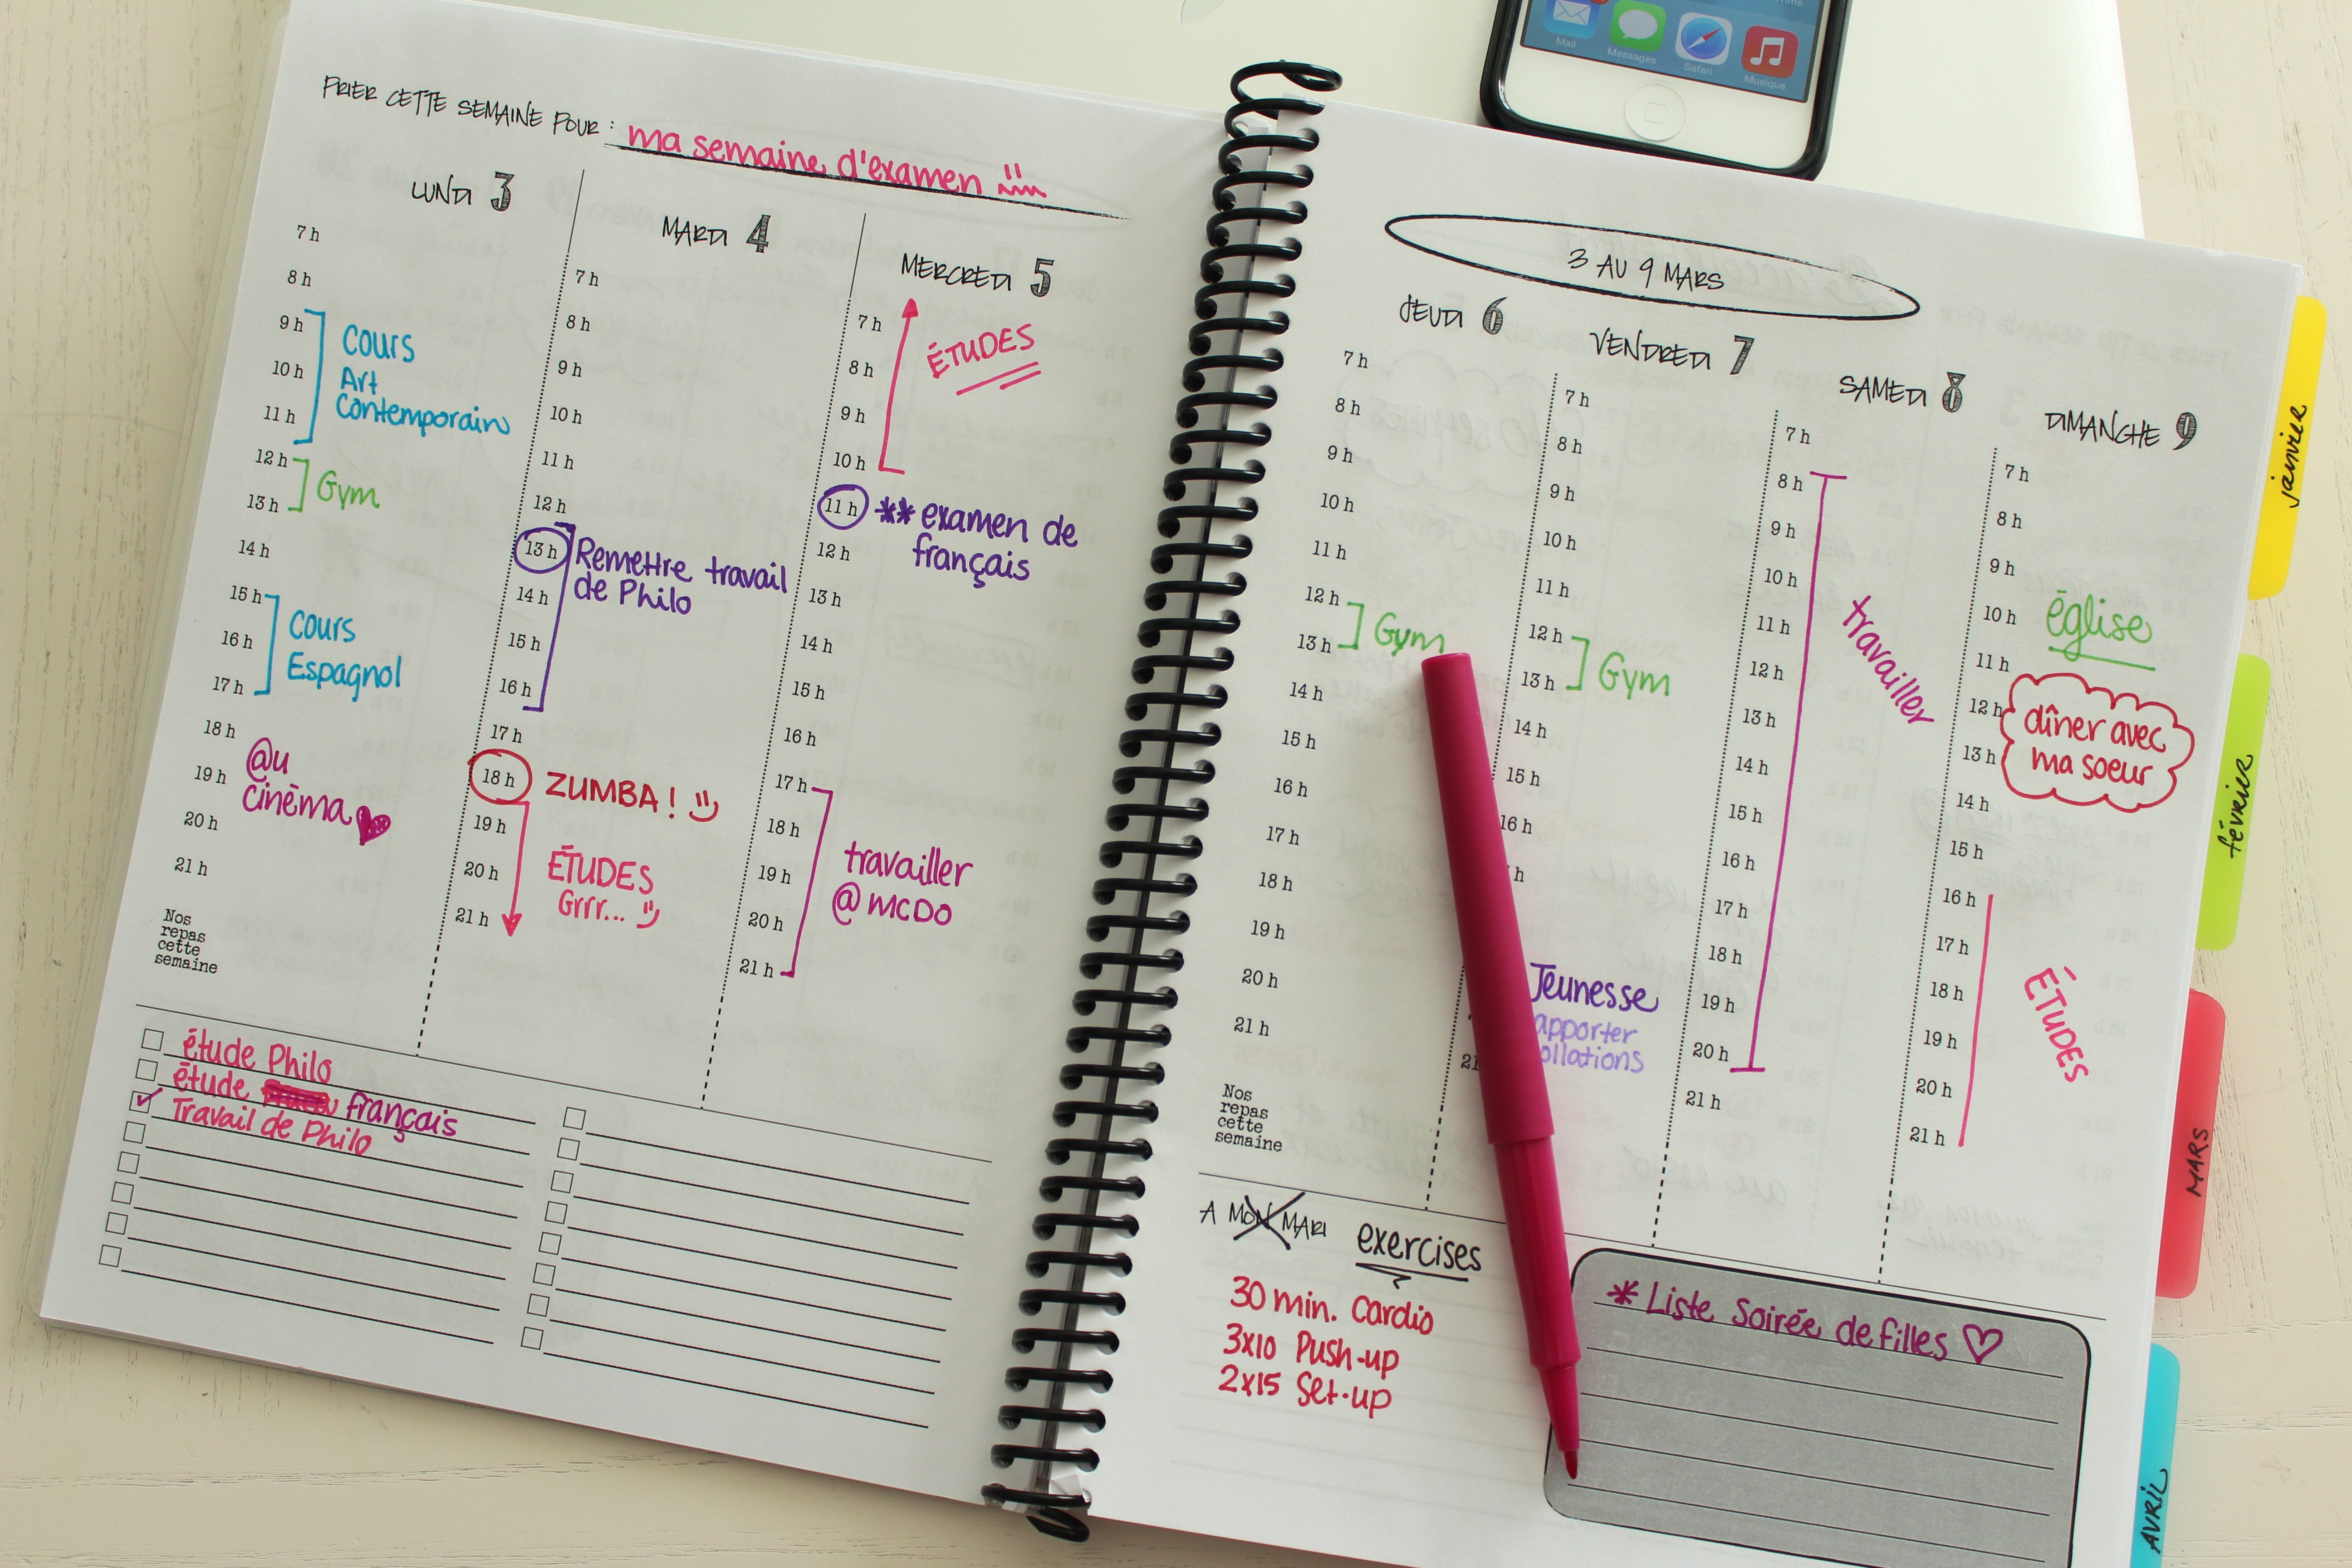 Mail
Messages
Safari
Musique
PRIER CETTE SEMAINE POUR : ma semaine d'examen
LUNDI 3
7 h
8 h
9 h
10 h
11 h
12 h
13 h
14 h
15 h
16 h
17 h
18 h
19 h
20 h
21 h
Cours
Art
Contemporain
Gym
Cours
Espagnol
@u
cinéma
MARDI 4
7 h
8 h
9 h
10 h
11 h
12 h
13 h
14 h
15 h
16 h
17 h
18 h
19 h
20 h
21 h
Remettre travail
de Philo
ZUMBA !
ÉTUDES
Grrr...
MERCREDI 5
7 h
8 h
9 h
10 h
11 h
12 h
13 h
14 h
15 h
16 h
17 h
18 h
19 h
20 h
21 h
ÉTUDES
** examen de
français
travailler
@ MCDO
Nos
repas
cette
semaine
étude Philo
étude français
Travail de Philo
3 AU 9 MARS
JEUDI 6
7 h
8 h
9 h
10 h
11 h
12 h
13 h
14 h
15 h
16 h
17 h
18 h
19 h
20 h
21 h
Gym
VENDREDI 7
7 h
8 h
9 h
10 h
11 h
12 h
13 h
14 h
15 h
16 h
h
21
Gym
Jeunesse
apporter
ollations
SAMEDI 8
7 h
8 h
9 h
10 h
11 h
12 h
13 h
14 h
15 h
16 h
17 h
18 h
19 h
20 h
21 h
travailler
DIMANCHE 9
7 h
8 h
9 h
10 h
11 h
12 h
13 h
14 h
15 h
16 h
17 h
18 h
19 h
20 h
21 h
église
dîner avec
ma soeur
ÉTUDES
Nos
repas
cette
semaine
A MON MARI exercises
30 min. Cardio
3x10 Push-up
2x15 Set-up
* Liste Soirée de filles
janvier
février
MARS
AVRIL